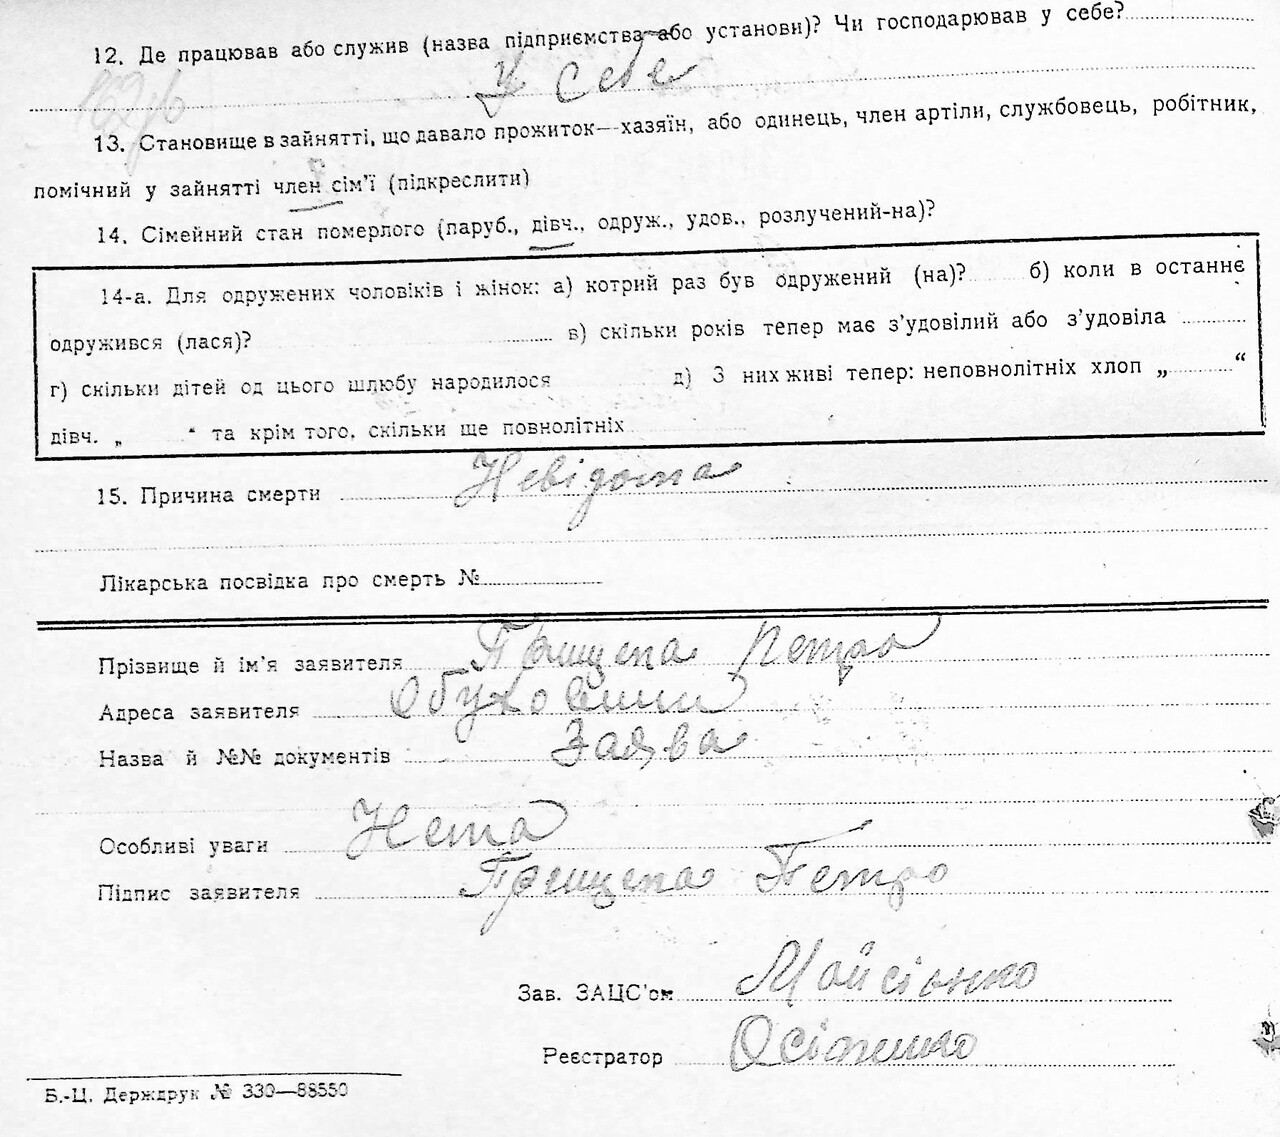 12. Де працював або служив (назва підприємства або установи)? Чи господарював у себе?
У себе
13. Становище в зайнятті, що давало прожиток—хазяїн, або одинець, член артіли, службовець, робітник,
помічний у зайнятті член сім'ї (підкреслити)
14. Сімейний стан померлого (паруб., дівч., одруж., удов., розлучений-на)?
14-а. Для одружених чоловіків і жінок: а) котрий раз був одружений (на)? б) коли в останнє
одружився (лася)? в) скільки років тепер має з'удовілий або з'удовіла
г) скільки дітей од цього шлюбу народилося д) З них живі тепер: неповнолітніх хлоп „ “
дівч. „ “ та крім того, скільки ще повнолітніх
15. Причина смерти Невідома
Лікарська посвідка про смерть №
Прізвище й ім'я заявителя Прищепа Петро
Адреса заявителя
Назва й №№ документів Заява
Особливі уваги Нема
Підпис заявителя Прищепа Петро
Зав. ЗАЦС'ом
Реєстратор
Б.-Ц. Держдрук № 330—88550